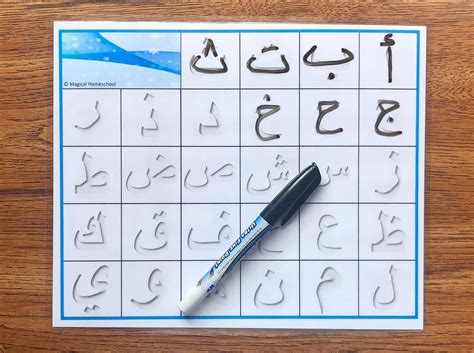 أ ب ت ث
© Magical Homeschool
ج ح خ د ذ ر
ز س ش ص ض ط
ظ ع ف ق ك
ل م ن و ي